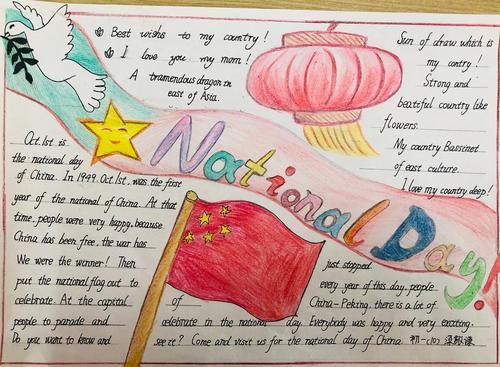 Best wishes to my country!
I love you my mom!
A tramendous dragon in
east of Asia.
Sun of draw which is
my contry!
Strong and
beatiful country like
flowers.
My country Bassinet
of east culture.
I love my country deep!
National Day!
Oct.1st is
the national day
of China. In 1949. Oct.1st. was the first
year of the national of China. At that
time, people were very happy. because
China has been free. the war has
We were the winner! Then
put the national flag out to
celebrate. At the capital
people to parade and
Do you want to know and
just stopped.
every year of this day. people
of China-Peking. there is a lot of
celebrate in the national day. Everybody was happy and very exciting.
see it? Come and visit us for the national day of China. 初一(10)